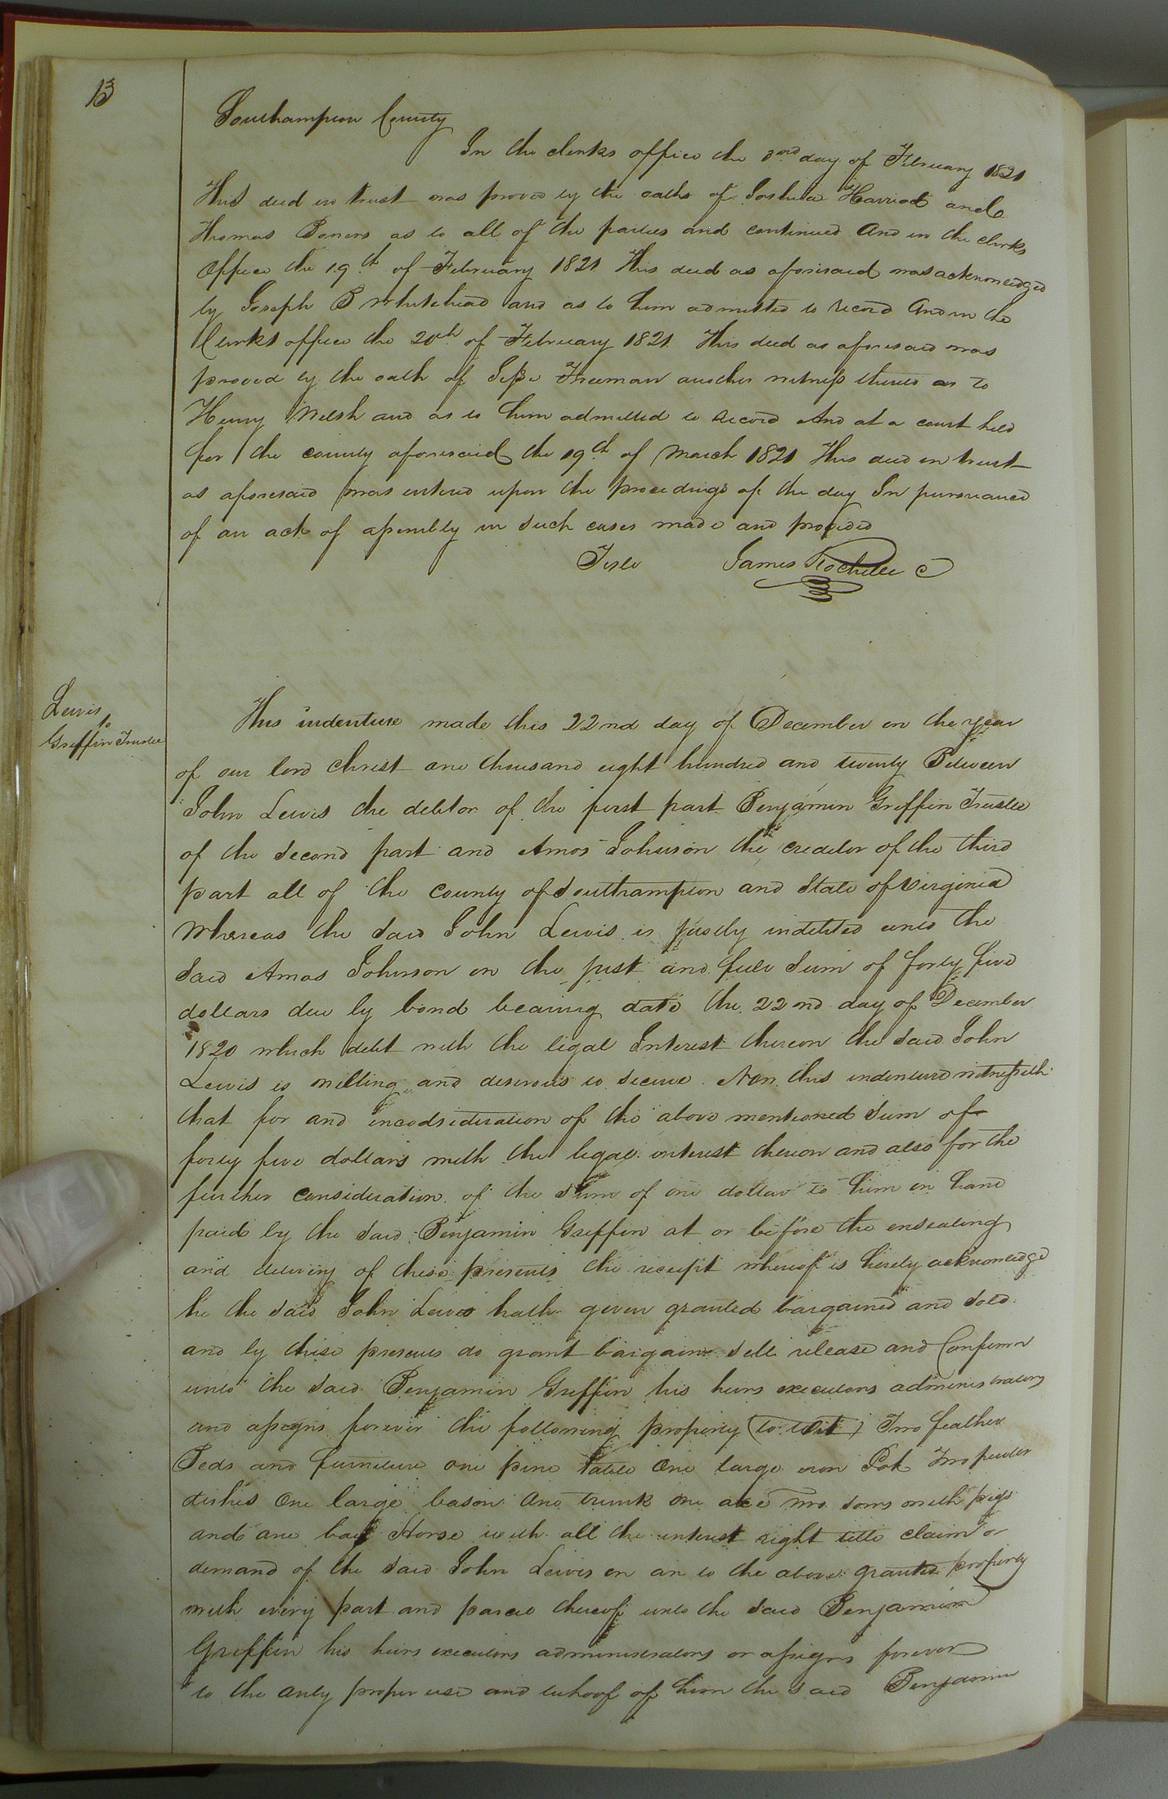 13
Southampton County
In the clerks office the 3rd day of February 1821
This deed in trust was proved by the oaths of Joshua Harriod and
Thomas as to all of the parties and continued And in the clerks
Office the 19th of February 1821 This deed as aforesaid was acknowledged
by Joseph B Whitehead and as to him admitted to record And in the
Clerks office the 20th of February 1821 This deed as aforesaid was
proved by the oath of Jesse Freeman another witness thereto as to
Henry Welsh and as to him admitted to record And at a court held
for the county aforesaid the 19th of March 1821 This deed in trust
as aforesaid was entered upon the proceedings of the day In pursuance
of an act of assembly in such cases made and provided
Teste James Rochelle C
Lewis
to
Griffin Trustee
This indenture made this 22nd day of December in the year
of our lord Christ one thousand eight hundred and twenty Between
John Lewis the debtor of the first part Benjamin Griffin Trustee
of the second part and Amos Johnson the creditor of the third
part all of the county of Southampton and State of Virginia
Whereas the said John Lewis is justly indebted unto the
said Amos Johnson in the just and full sum of forty five
dollars due by bond bearing date the 22nd day of December
1820 which debt with the legal Interest thereon the said John
Lewis is willing and desirous to secure. Now this indenture witnesseth
that for and inconsideration of the above mentioned sum of
forty five dollars with the legal interest thereon and also for the
further consideration of the sum of one dollar to him in hand
paid by the said Benjamin Griffin at or before the ensealing
and delivery of these presents the receipt whereof is hereby acknowledge
he the said John Lewis hath given granted bargained and sold
and by these presents do grant bargain sell release and Confirm
unto the said Benjamin Griffin his heirs executors administrators
and assigns forever the following property (to wit) Two feather
Beds and furniture one pine table One large iron Pot Two pewter
dishes One large bason One trunk one axe Two sows with pigs
and one bay Horse with all the interest right title claim or
demand of the said John Lewis in an to the above granted property
with every part and parcel thereof unto the said Benjamin
Griffin his heirs executors administrators or assigns forever
to the only proper use and behoof of him the said Benjamin